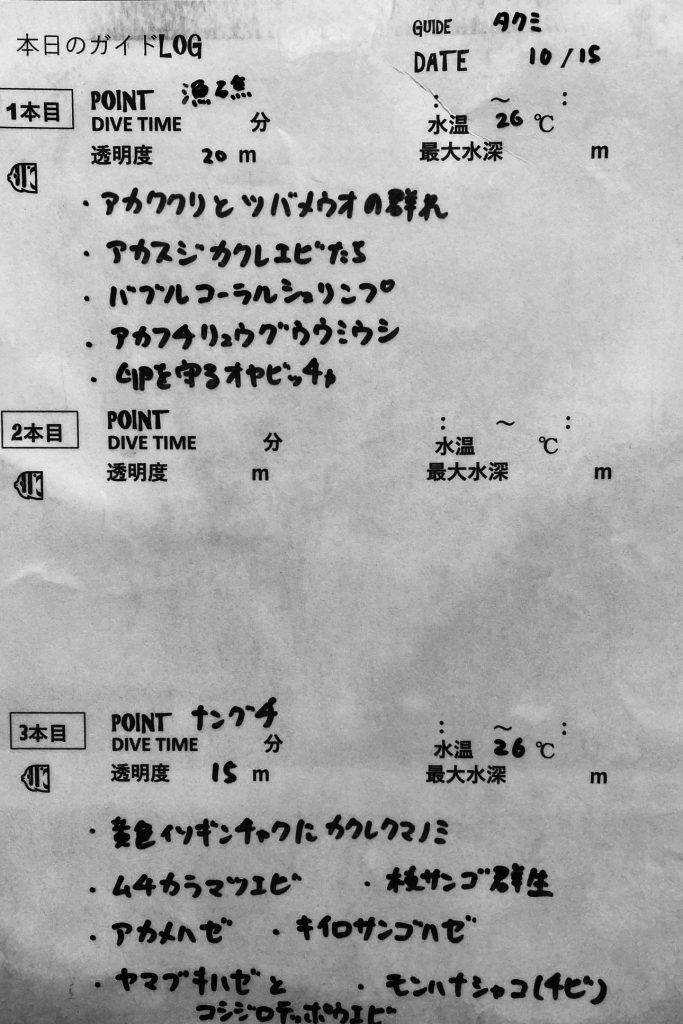 本日のガイドLOG
GUIDE タクミ
DATE 10/15
1本目 POINT 漁礁 : ～ :
DIVE TIME 分 水温 26 ℃
透明度 20 m 最大水深 m
・アカククリとツバメウオの群れ
・アカスジカクレエビたち
・バブルコーラルシュリンプ
・アカフチリュウグウウミウシ
・卵を守るオヤビッチャ
2本目 POINT : ～ :
DIVE TIME 分 水温 ℃
透明度 m 最大水深 m
3本目 POINT ナングチ : ～ :
DIVE TIME 分 水温 26 ℃
透明度 15 m 最大水深 m
・黄色イソギンチャクにカクレクマノミ
・ムチカラマツエビ ・枝サンゴ群生
・アカメハゼ ・キイロサンゴハゼ
・ヤマブキハゼと ・モンハナシャコ(チビ)
コシジロテッポウエビ